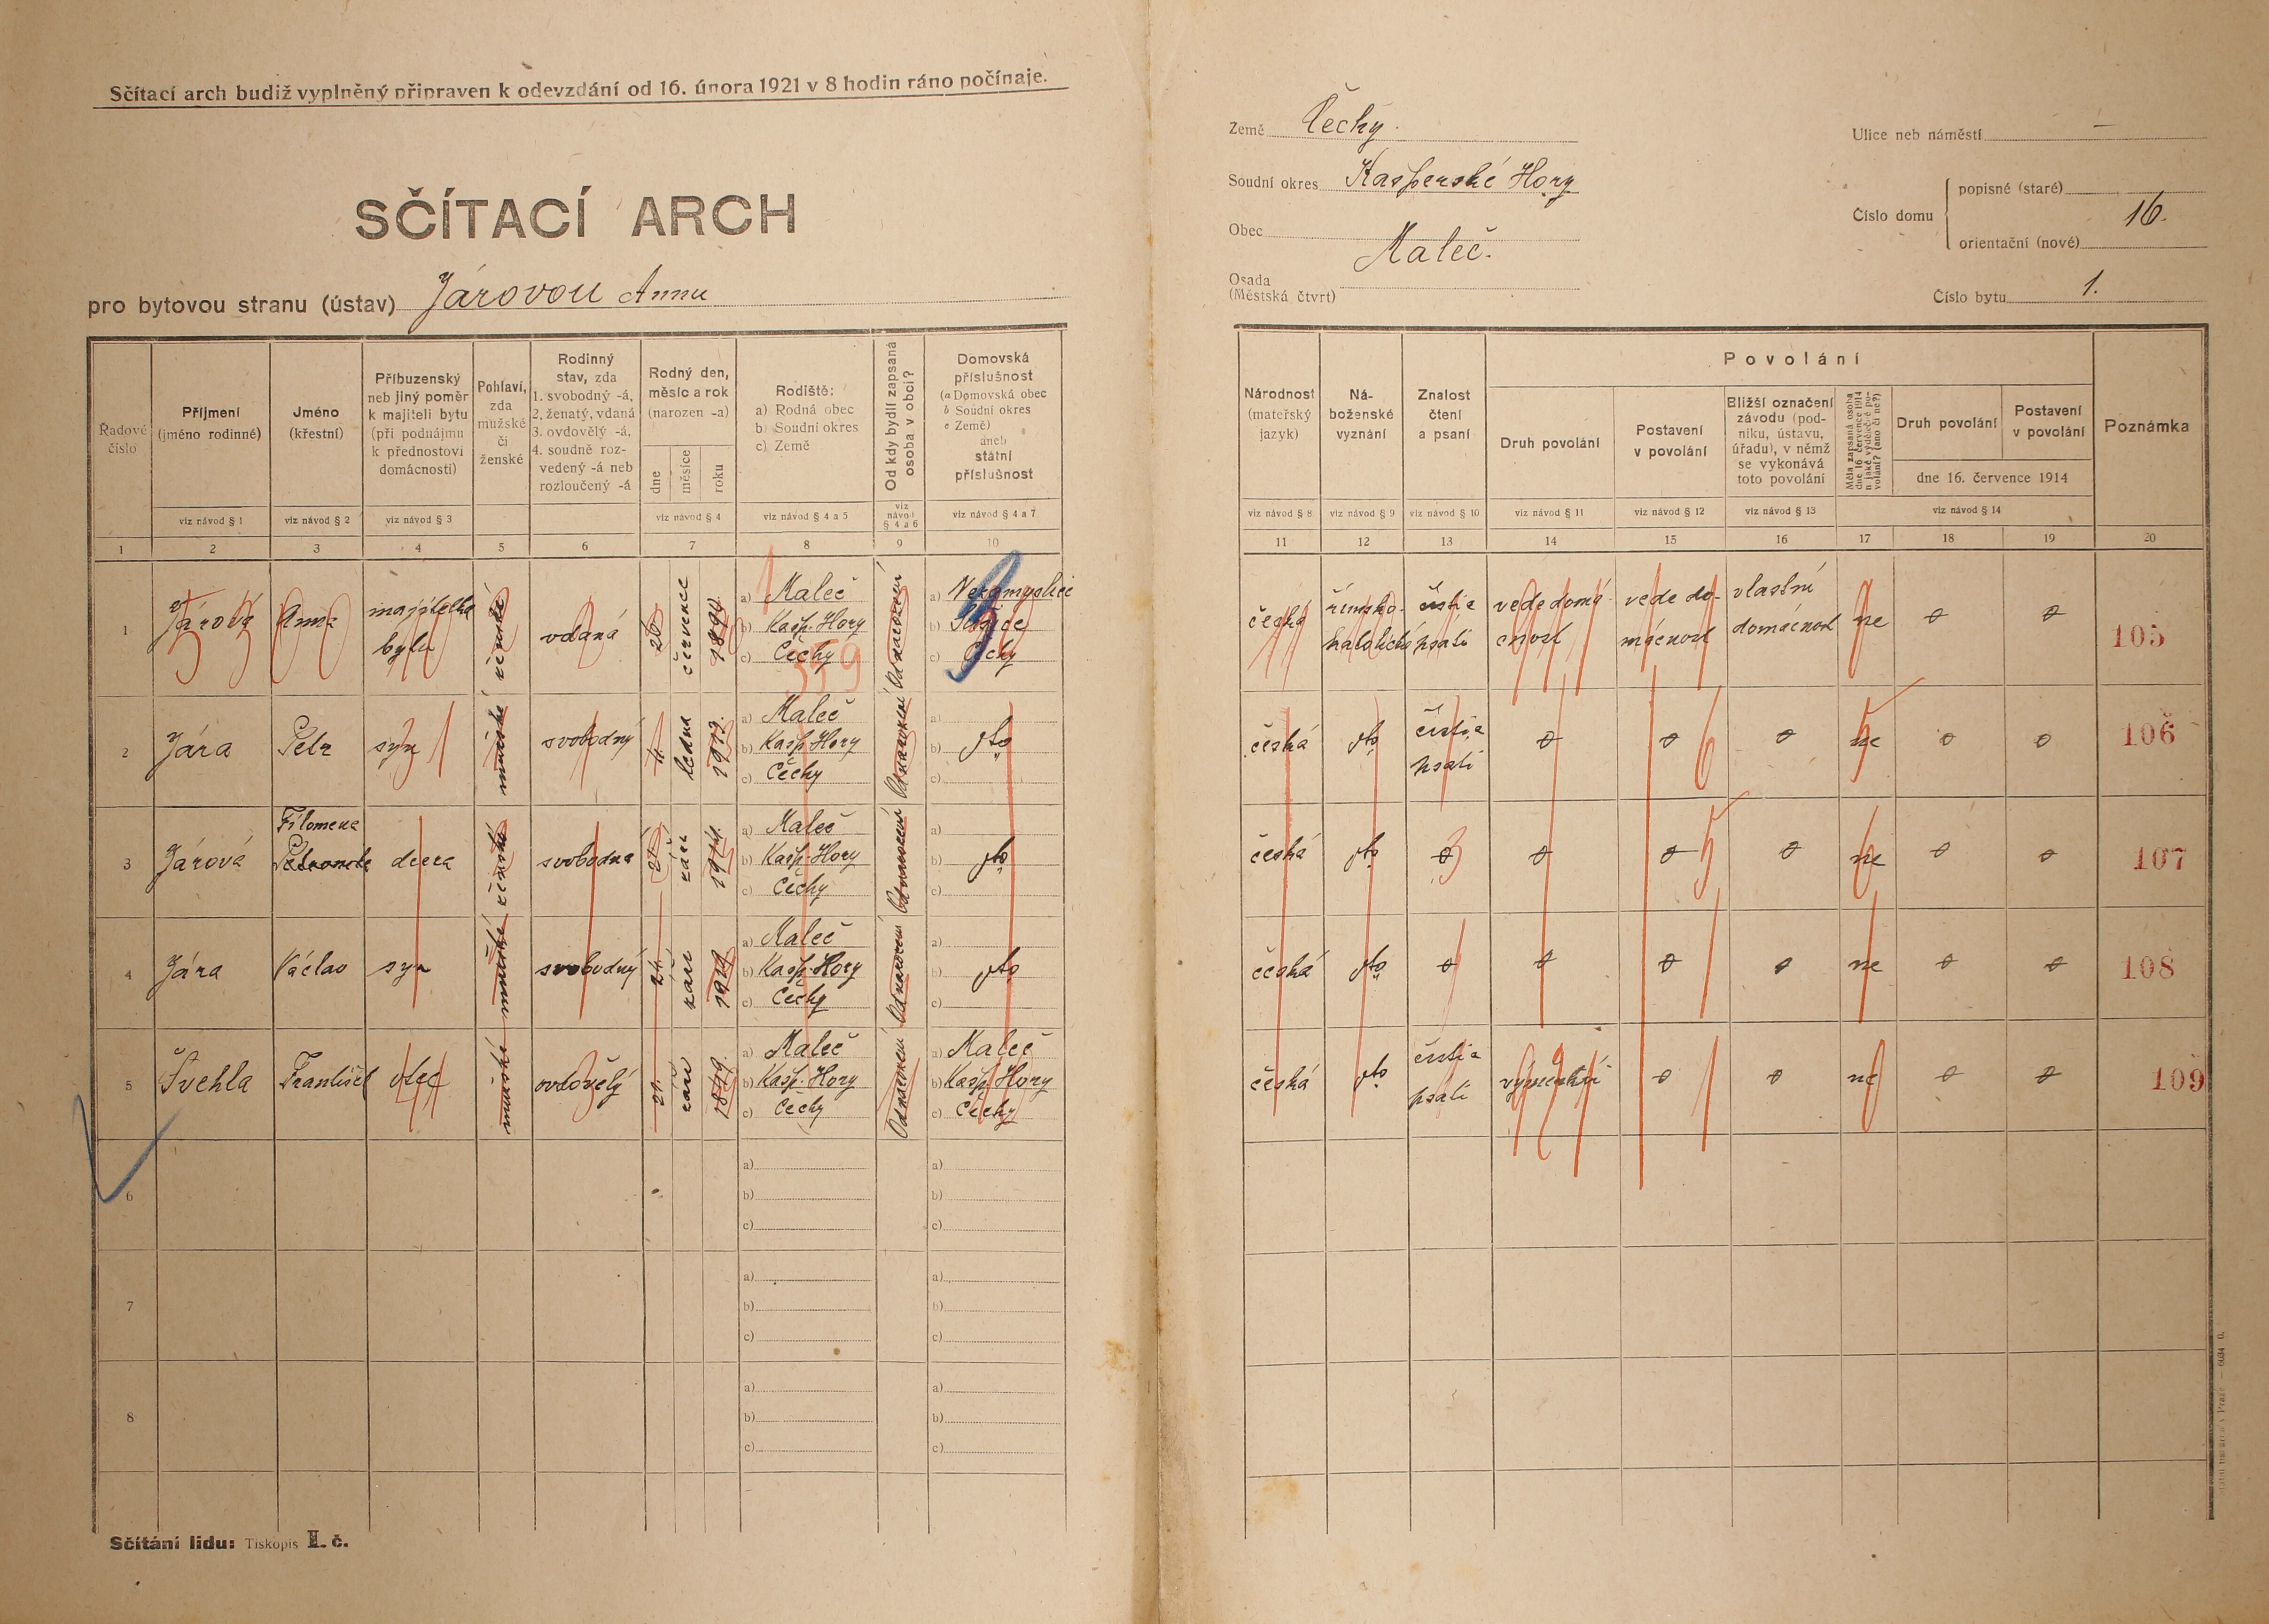 Sčítací arch budiž vyplněný připraven k odevzdání od 16. února 1921 v 8 hodin ráno počínaje.
SČÍTACÍ ARCH
pro bytovou stranu (ústav) Járovou Annu
Země Čechy.
Soudní okres Kasperské Hory
Obec
Maleč.
Osada
(Městská čtvrt)
Ulice neb náměstí —
Číslo domu
popisné (staré)
16.
orientační (nové)
Číslo bytu 1.
Řadové číslo
Příjmení
(jméno rodinné)
viz návod § 1
Jméno
(křestní)
viz návod § 2
Příbuzenský
neb jiný poměr
k majiteli bytu
(při podnájmu
k přednostovi
domácnosti)
viz návod § 3
Pohlaví,
zda
mužské
či
ženské
Rodinný
stav, zda
1. svobodný -á,
2. ženatý, vdaná
3. ovdovělý -á,
4. soudně roz-
vedený -á neb
rozloučený -á
Rodný den,
měsíc a rok
(narozen -a)
dne
měsíce
roku
viz návod § 4
Rodiště:
a) Rodná obec
b) Soudní okres
c) Země
viz návod § 4 a 5
Od kdy bydlí zapsaná
osoba v obci?
viz
návod
§ 4 a 6
Domovská
příslušnost
(a Domovská obec
b Soudní okres
c Země)
aneb
státní
příslušnost
viz návod § 4 a 7
Národnost
(mateřský
jazyk)
viz návod § 8
Ná-
boženské
vyznání
viz návod § 9
Znalost
čtení
a psaní
viz návod § 10
Povolání
Druh povolání
viz návod § 11
Postavení
v povolání
viz návod § 12
Bližší označení
závodu (pod-
niku, ústavu,
úřadu), v němž
se vykonává
toto povolání
viz návod § 13
Měla zapsaná osoba
dne 16 července 1914
n jaké výdělečné po-
volání? (ano či ne?)
Druh povolání
Postavení
v povolání
dne 16. července 1914
viz návod § 14
Poznámka
1 2 3 4 5 6 7 8 9 10 11 12 13 14 15 16 17 18 19 20
1 Járová Anna majitelka bytu ženské vdaná 26 července
a) Maleč
b) Kašp. Hory
c) Čechy
359
Od narození
a) Nezamyslice
b)
c) Čechy
česká římsko-katolické čísti a psáti vede domácnost vede domácnost vlastní domácnost ne 0 0 105
2 Jára Petr syn mužské svobodný ledna
a) Maleč
b) Kašp. Hory
c) Čechy
Od narození
a)
b) dto
c)
česká dto čísti a psáti 0 0 0 ne 0 0 106
3 Járová Filomena dcera ženské svobodná září 1914.
a) Maleč
b) Kašp. Hory
c) Čechy
Od narození
a)
b) dto
c)
česká dto 0 0 0 0 ne 0 0 107
4 Jára Václav syn mužské svobodný 24. září 1919
a) Maleč
b) Kašp. Hory
c) Čechy
Od narození
a)
b) dto
c)
česká dto 0 0 0 0 ne 0 0 108
5 Švehla František otec mužské ovdovělý 21. září
a) Maleč
b) Kašp. Hory
c) Čechy
Od narození
a) Maleč
b) Kašp. Hory
c) Čechy
česká dto čísti a psáti výměnkář 0 0 ne 0 0 109
6 a) b) c) a) b) c)
7 a) b) c) a) b) c)
8 a) b) c) a) b) c)
Sčítání lidu: Tiskopis II. č.